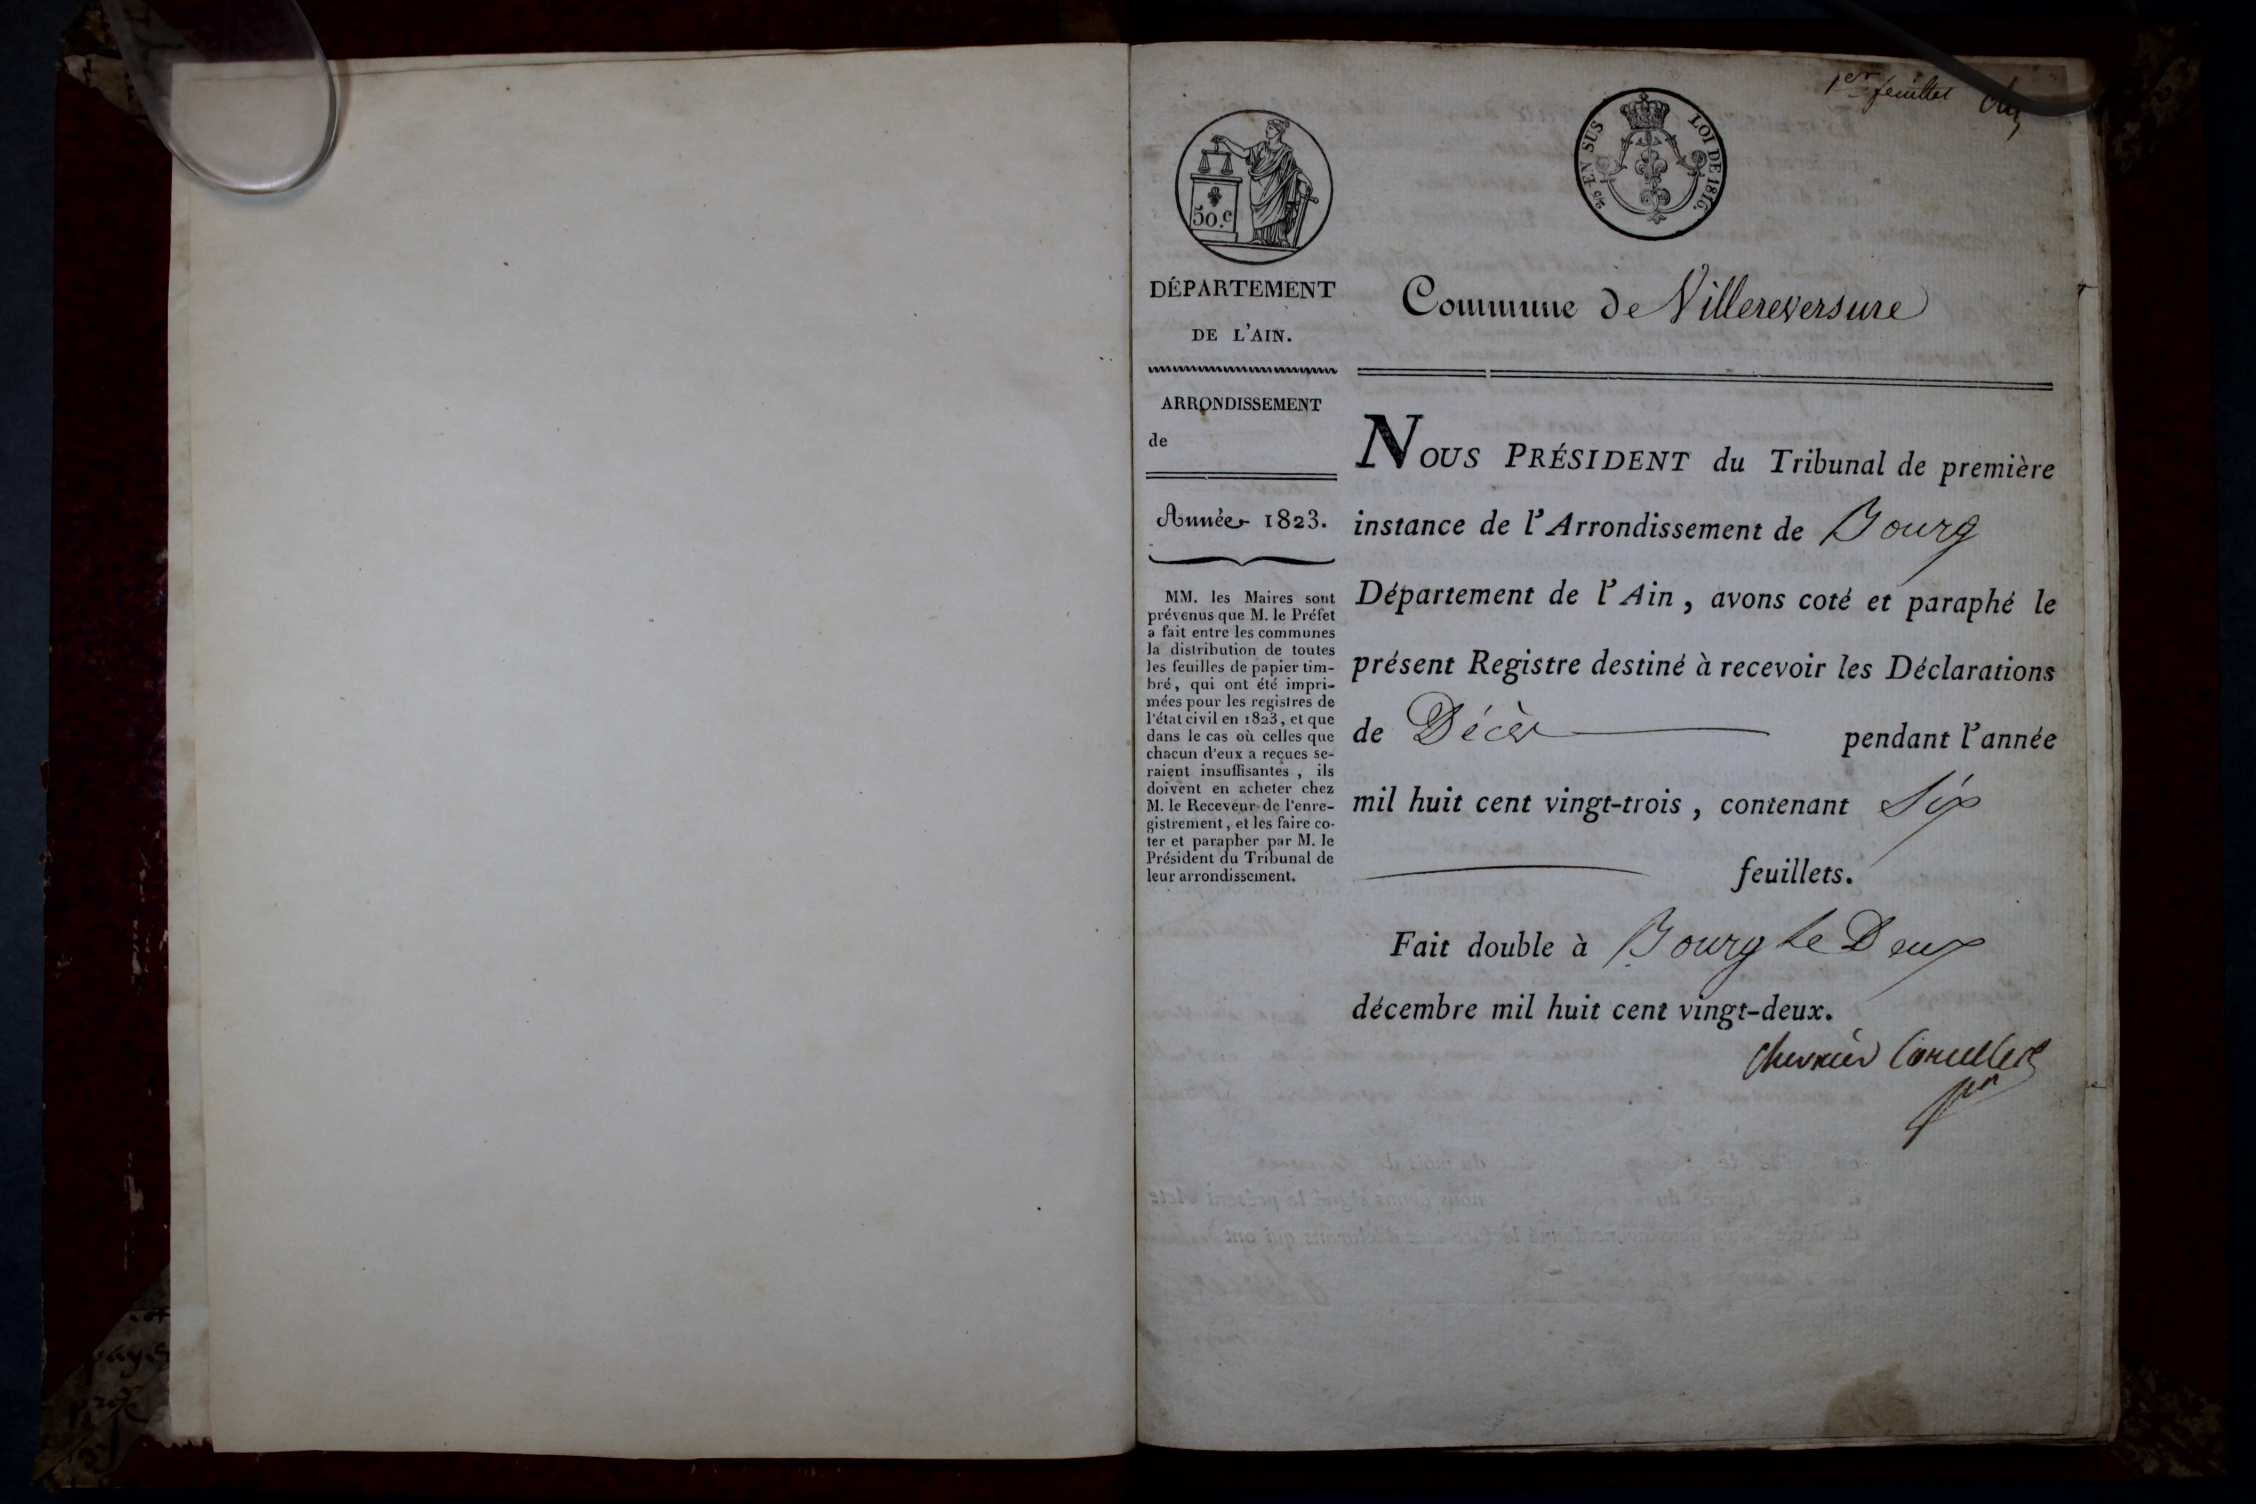 1er feuillet
50.c
25 EN SUS LOI DE 1816.
DÉPARTEMENT
DE L'AIN.
ARRONDISSEMENT
de
Année 1823.
MM. les Maires sont
prévenus que M. le Préfet
a fait entre les communes
la distribution de toutes
les feuilles de papier tim-
bré, qui ont été impri-
mées pour les registres de
l'état civil en 1823, et que
dans le cas où celles que
chacun d'eux a reçues se-
raient insuffisantes, ils
doivent en acheter chez
M. le Receveur de l'enre-
gistrement, et les faire co-
ter et parapher par M. le
Président du Tribunal de
leur arrondissement.
Commune de Villereversure
NOUS PRÉSIDENT du Tribunal de première
instance de l'Arrondissement de Bourg
Département de l'Ain, avons coté et paraphé le
présent Registre destiné à recevoir les Déclarations
de Décès pendant l'année
mil huit cent vingt-trois, contenant Six
feuillets.
Fait double à Bourg le Deux
décembre mil huit cent vingt-deux.
Chevrier Corcelles